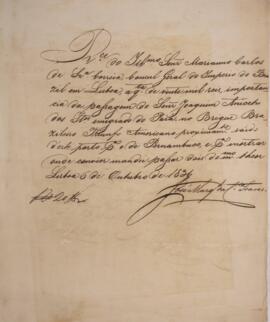 Rce do Illmo Snr Marianno Carlos
de Sza Correia Consul Geral do Imperio do Bra
zil em Lisboa, a qta de vinte mil reis, importan
cia da passagem do Snr Joaquim Aniceto
dos Stos emigrado do Pará no Brigue Bra
zileiro Triunfo Americano proximamte saido
deste porto pa o de Pernambuco, e pa constar
onde convier mandei passar dois do mmo theor
Lisboa 6 de Outubro de 1836